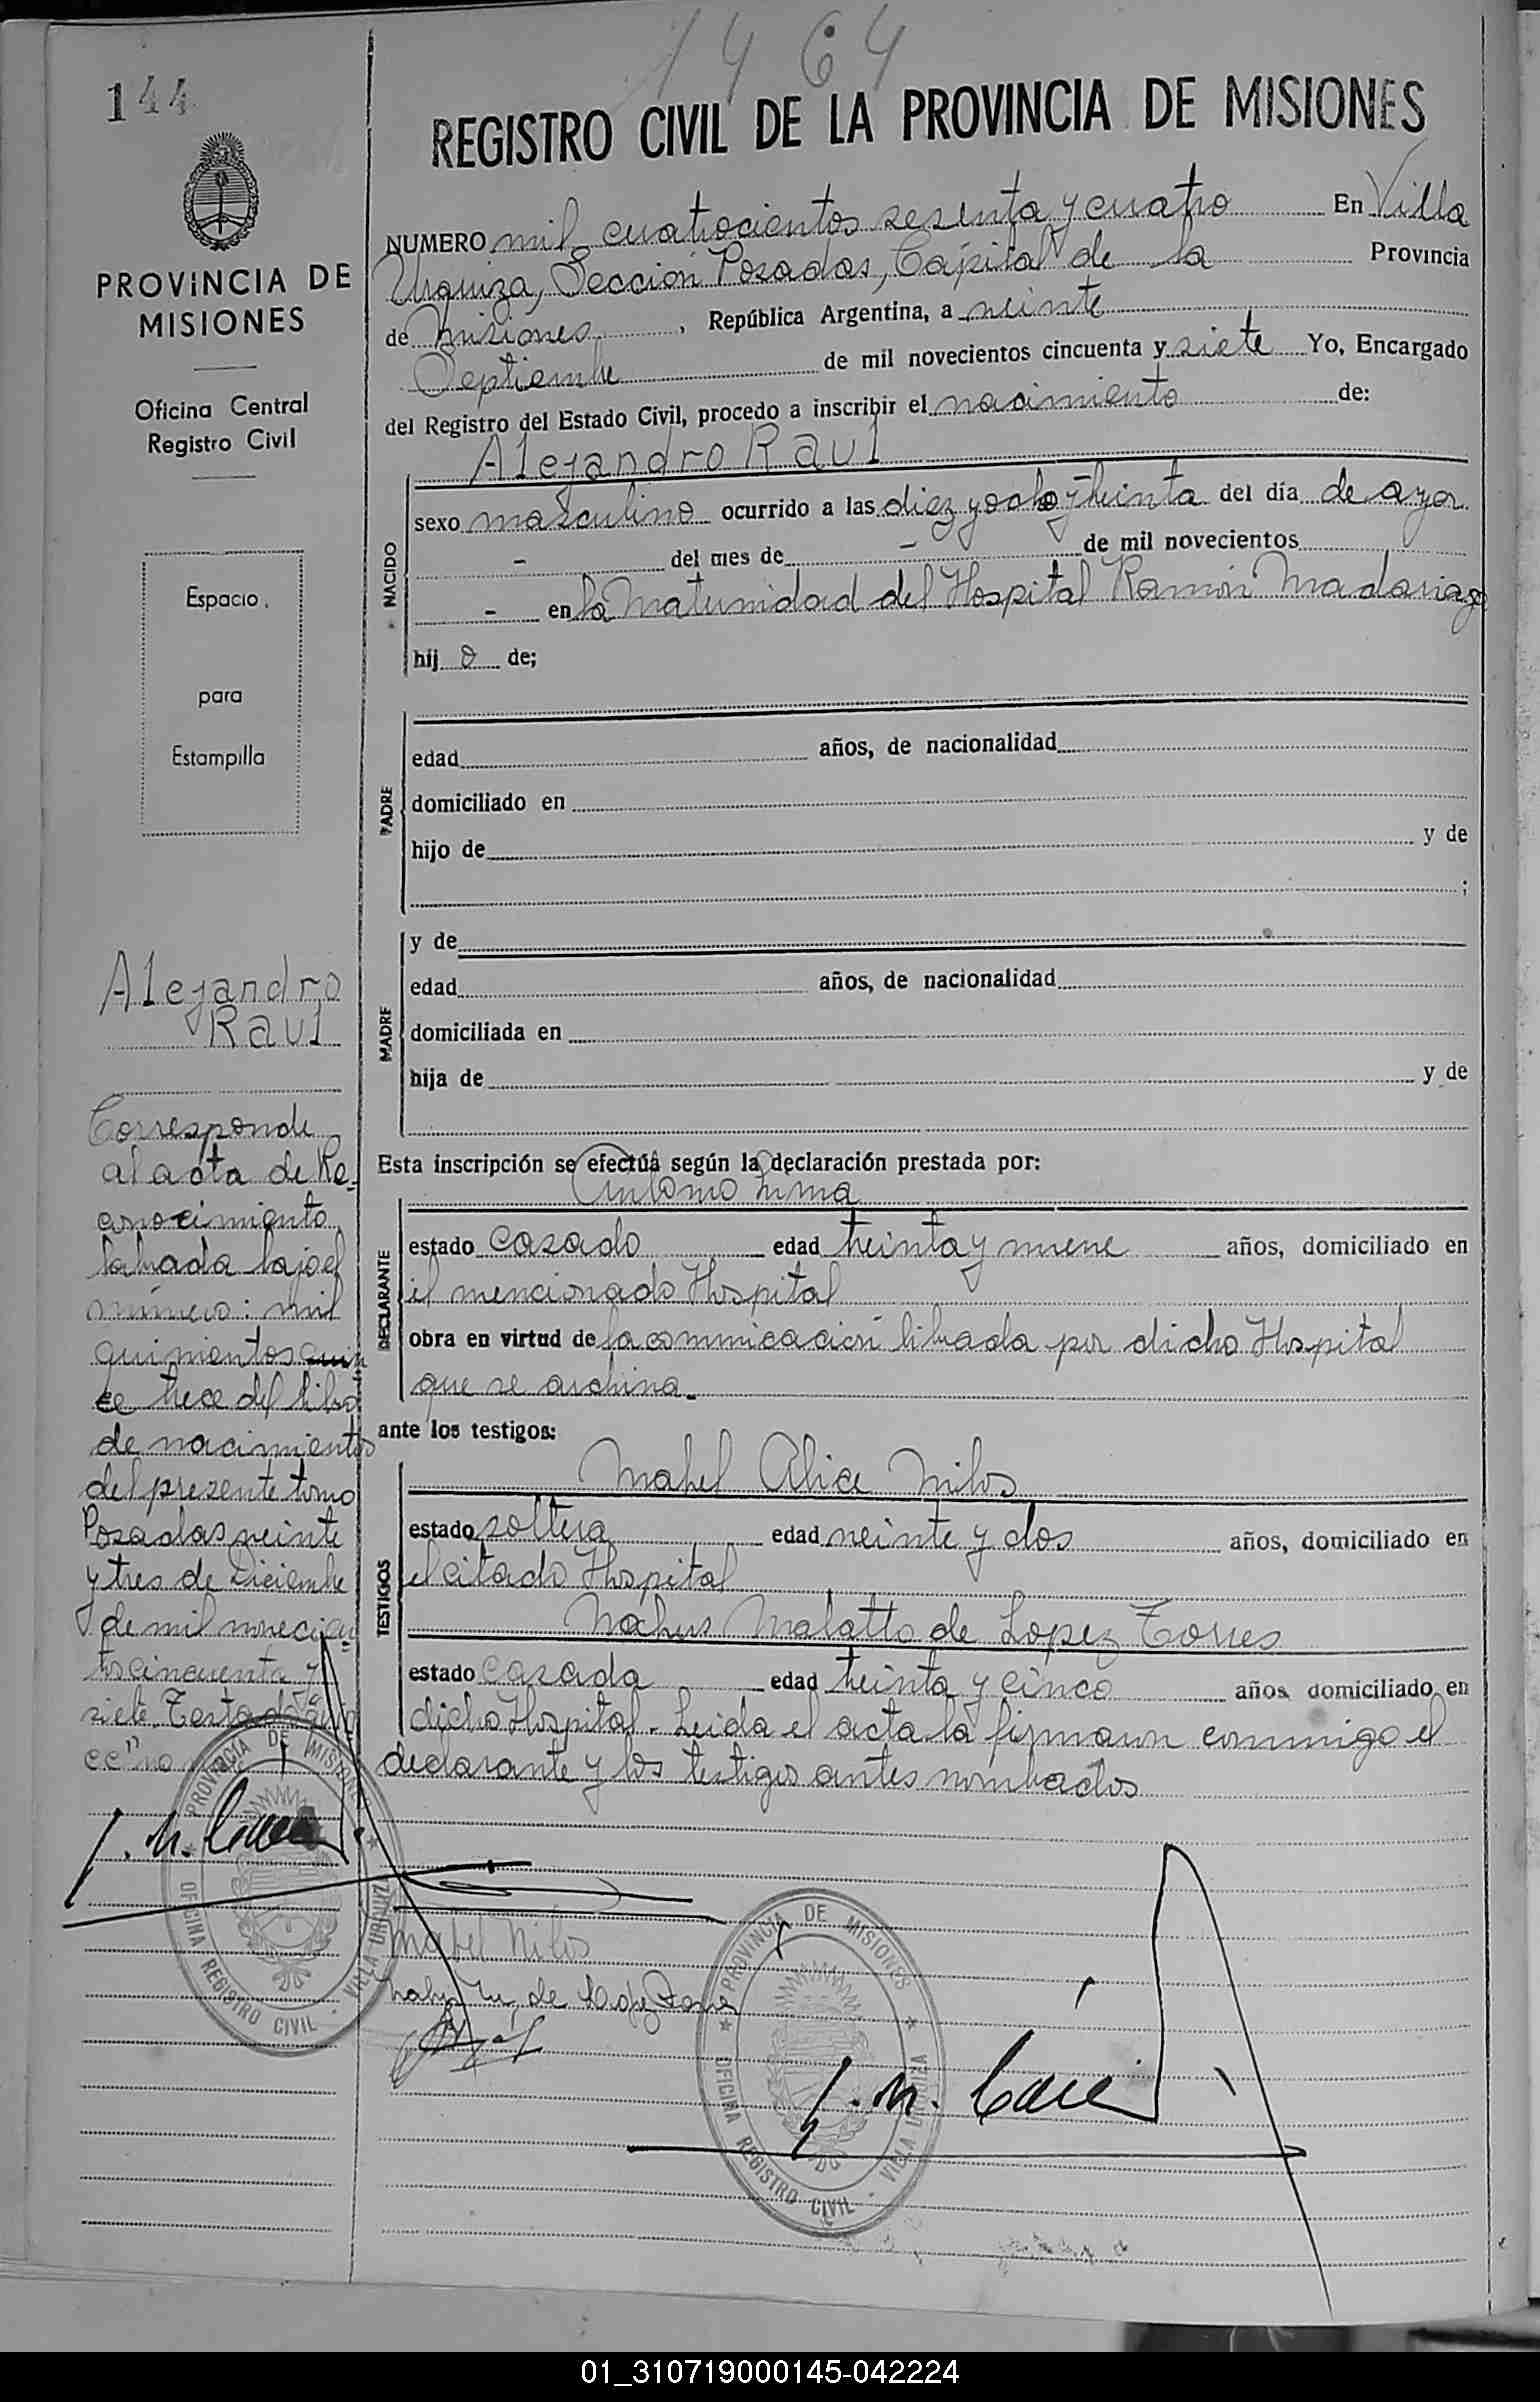 1464
144
REGISTRO CIVIL DE LA PROVINCIA DE MISIONES
PROVINCIA DE
MISIONES
Oficina Central
Registro Civil
Espacio
para
Estampilla
NUMERO mil cuatrocientos sesenta y cuatro En Villa
Urquiza, Sección Posadas, Capital de la Provincia
de Misiones, República Argentina, a veinte
Septiembre de mil novecientos cincuenta y siete Yo, Encargado
del Registro del Estado Civil, procedo a inscribir el nacimiento de:
Alejandro Raul
NACIDO
sexo masculino ocurrido a las diez y ocho y treinta del día de ayer
- del mes de - de mil novecientos
- en la Maternidad del Hospital Ramón Madariaga
hij o de;
PADRE
edad años, de nacionalidad
domiciliado en
hijo de y de
;
MADRE
y de
edad años, de nacionalidad
domiciliada en
hija de y de
Esta inscripción se efectúa según la declaración prestada por:
DECLARANTE
Antonio
estado casado edad treinta y nueve años, domiciliado en
el mencionado Hospital
obra en virtud de la comunicación librada por dicho Hospital
que se archiva.
ante los testigos:
TESTIGOS
Mabel Alice Milos
estado soltera edad veinte y dos años, domiciliado en
el citado Hospital
Malatto de Lopez Torres
estado casada edad treinta y cinco años domiciliado en
dicho Hospital. Leida el acta la firmaron conmigo el
declarante y los testigos antes nombrados
Alejandro
Raul
Corresponde
al acta de Re-
conocimiento
labrada bajo el
número: mil
quinientos quin
ce trece del libro
de nacimientos
del presente tomo
Posadas veinte
y tres de Diciembre
de mil novecien
tos cincuenta y
siete. Testado "quin
ce" no
PROVINCIA DE MISIONES
OFICINA REGISTRO CIVIL - VILLA URQUIZA
Mabel Milos
de Lopez Torres
PROVINCIA DE MISIONES
OFICINA REGISTRO CIVIL - VILLA URQUIZA
01_310719000145-042224